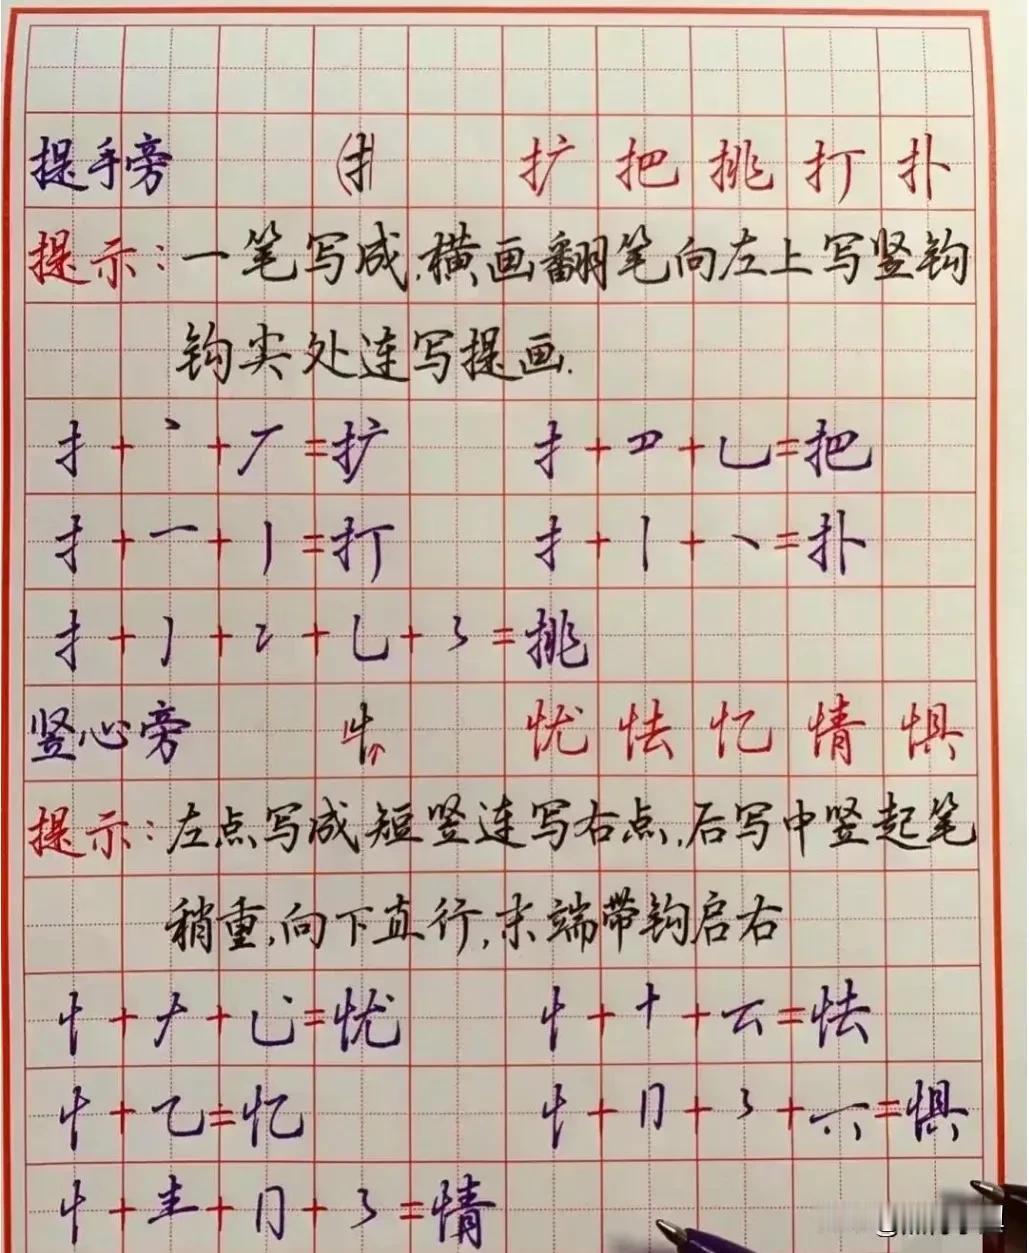 提手旁 扌 扩 把 挑 打 扑
提示：一笔写成,横画翻笔向左上写竖钩
钩尖处连写提画.
扌+丶+丆=扩 扌+罒+乚=把
扌+一+丨=打 扌+丨+丶=扑
扌+丿+冫+乚+冫=挑
竖心旁 忄 忧 怯 忆 情 惧
提示：左点写成短竖连写右点,后写中竖起笔
稍重,向下直行,末端带钩启右
忄+ナ+乚=忧 忄+十+云=怯
忄+乙=忆 忄+冂+冫+六=惧
忄+龶+冂+冫=情